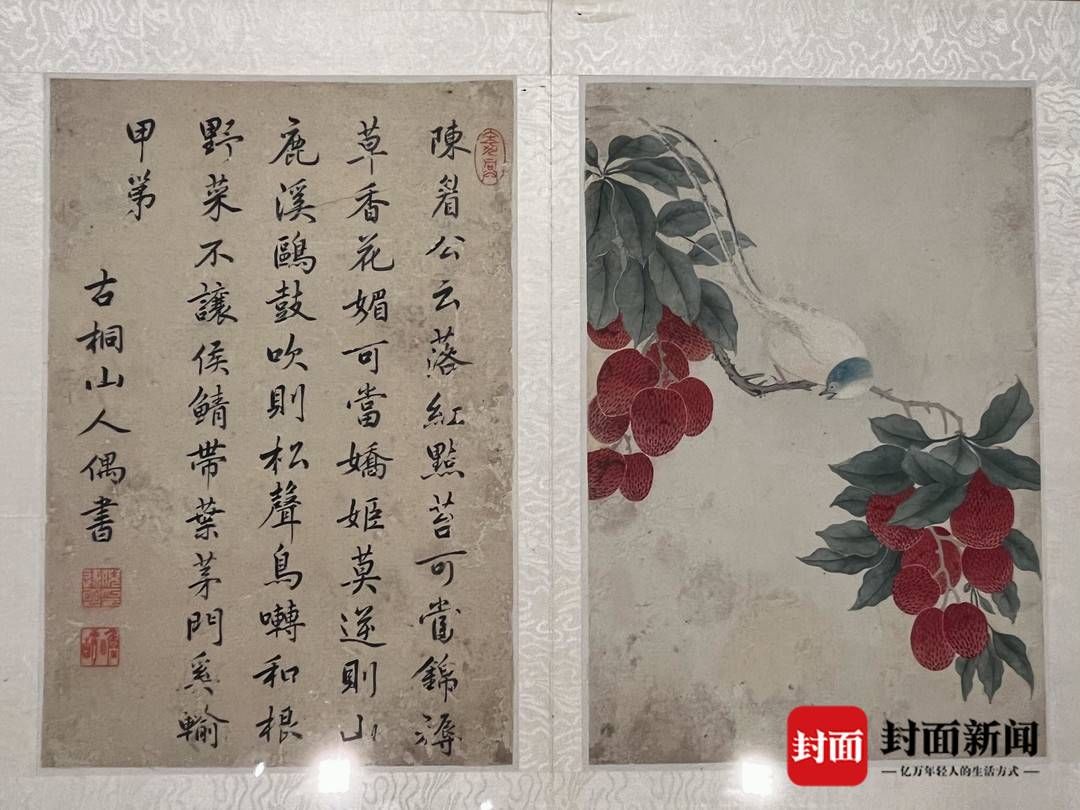 陳眉公云落紅點苔可當錦褥
草香花媚可當嬌姬莫逆則山
鹿溪鷗鼓吹則松聲鳥囀和根
野菜不讓侯鯖帶葉茅門奚輸
甲第
古桐山人偶書
封面
封面新闻
亿万年轻人的生活方式